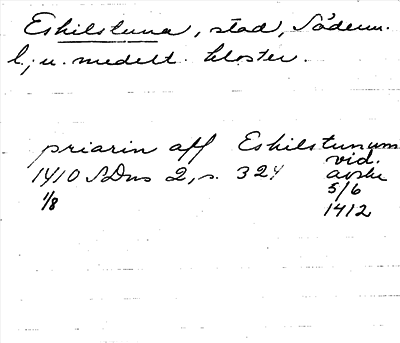 Eskilstuna, stad, Söderm.
l., u. medelt. kloster.
priorin aff Eskilstunum
1410 SDns 2, s. 324 vid.
1/8 avskr
5/6
1412